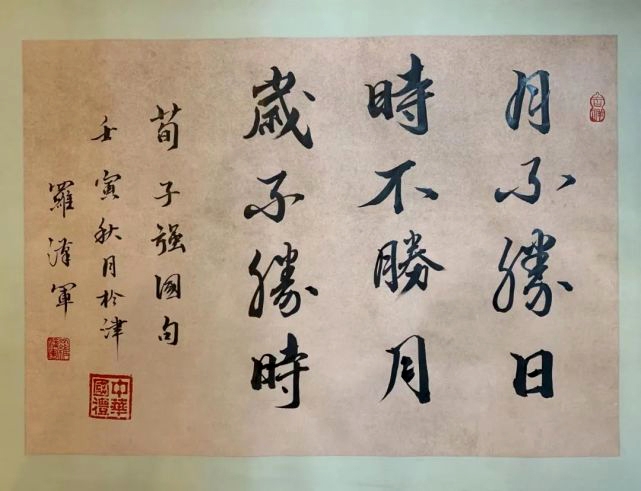 月不勝日
時不勝月
歲不勝時
荀子强國句
壬寅秋月於津
羅漢軍
中華國禮